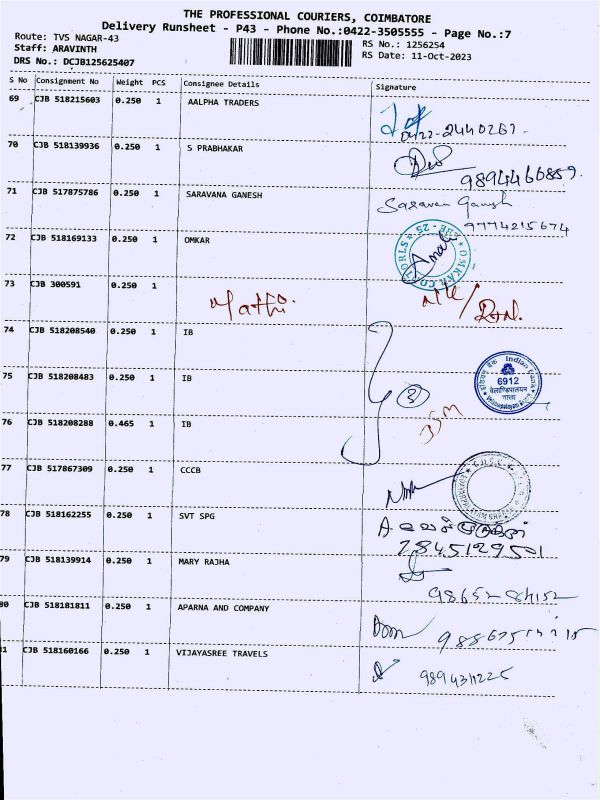 THE PROFESSIONAL COURIERS, COIMBATORE
Delivery Runsheet - P43 - Phone No.:0422-3505555 - Page No.:7
Route: TVS NAGAR-43
RS No.: 1256254
Staff: ARAVINTH
RS Date: 11-Oct-2023
DRS No.: DCJB125625407
S No Consignment No Weight PCS Consignee Details Signature
69 CJB 518215603 0.250 1 AALPHA TRADERS
0422-2440267
70 CJB 518139936 0.250 1 S PRABHAKAR
9894466859.
71 CJB 517875786 0.250 1 SARAVANA GANESH
Saravan Ganesh
9774215674
72 CJB 518169133 0.250 1 OMKAR
73 CJB 300591 0.250 1
Mathi.
74 CJB 518208540 0.250 1 IB
75 CJB 518208483 0.250 1 IB
Indian Bank
6912
3
76 CJB 518208288 0.465 1 IB
77 CJB 517867309 0.250 1 CCCB
78 CJB 518162255 0.250 1 SVT SPG
79 CJB 518139914 0.250 1 MARY RAJHA
80 CJB 518181811 0.250 1 APARNA AND COMPANY
81 CJB 518160166 0.250 1 VIJAYASREE TRAVELS